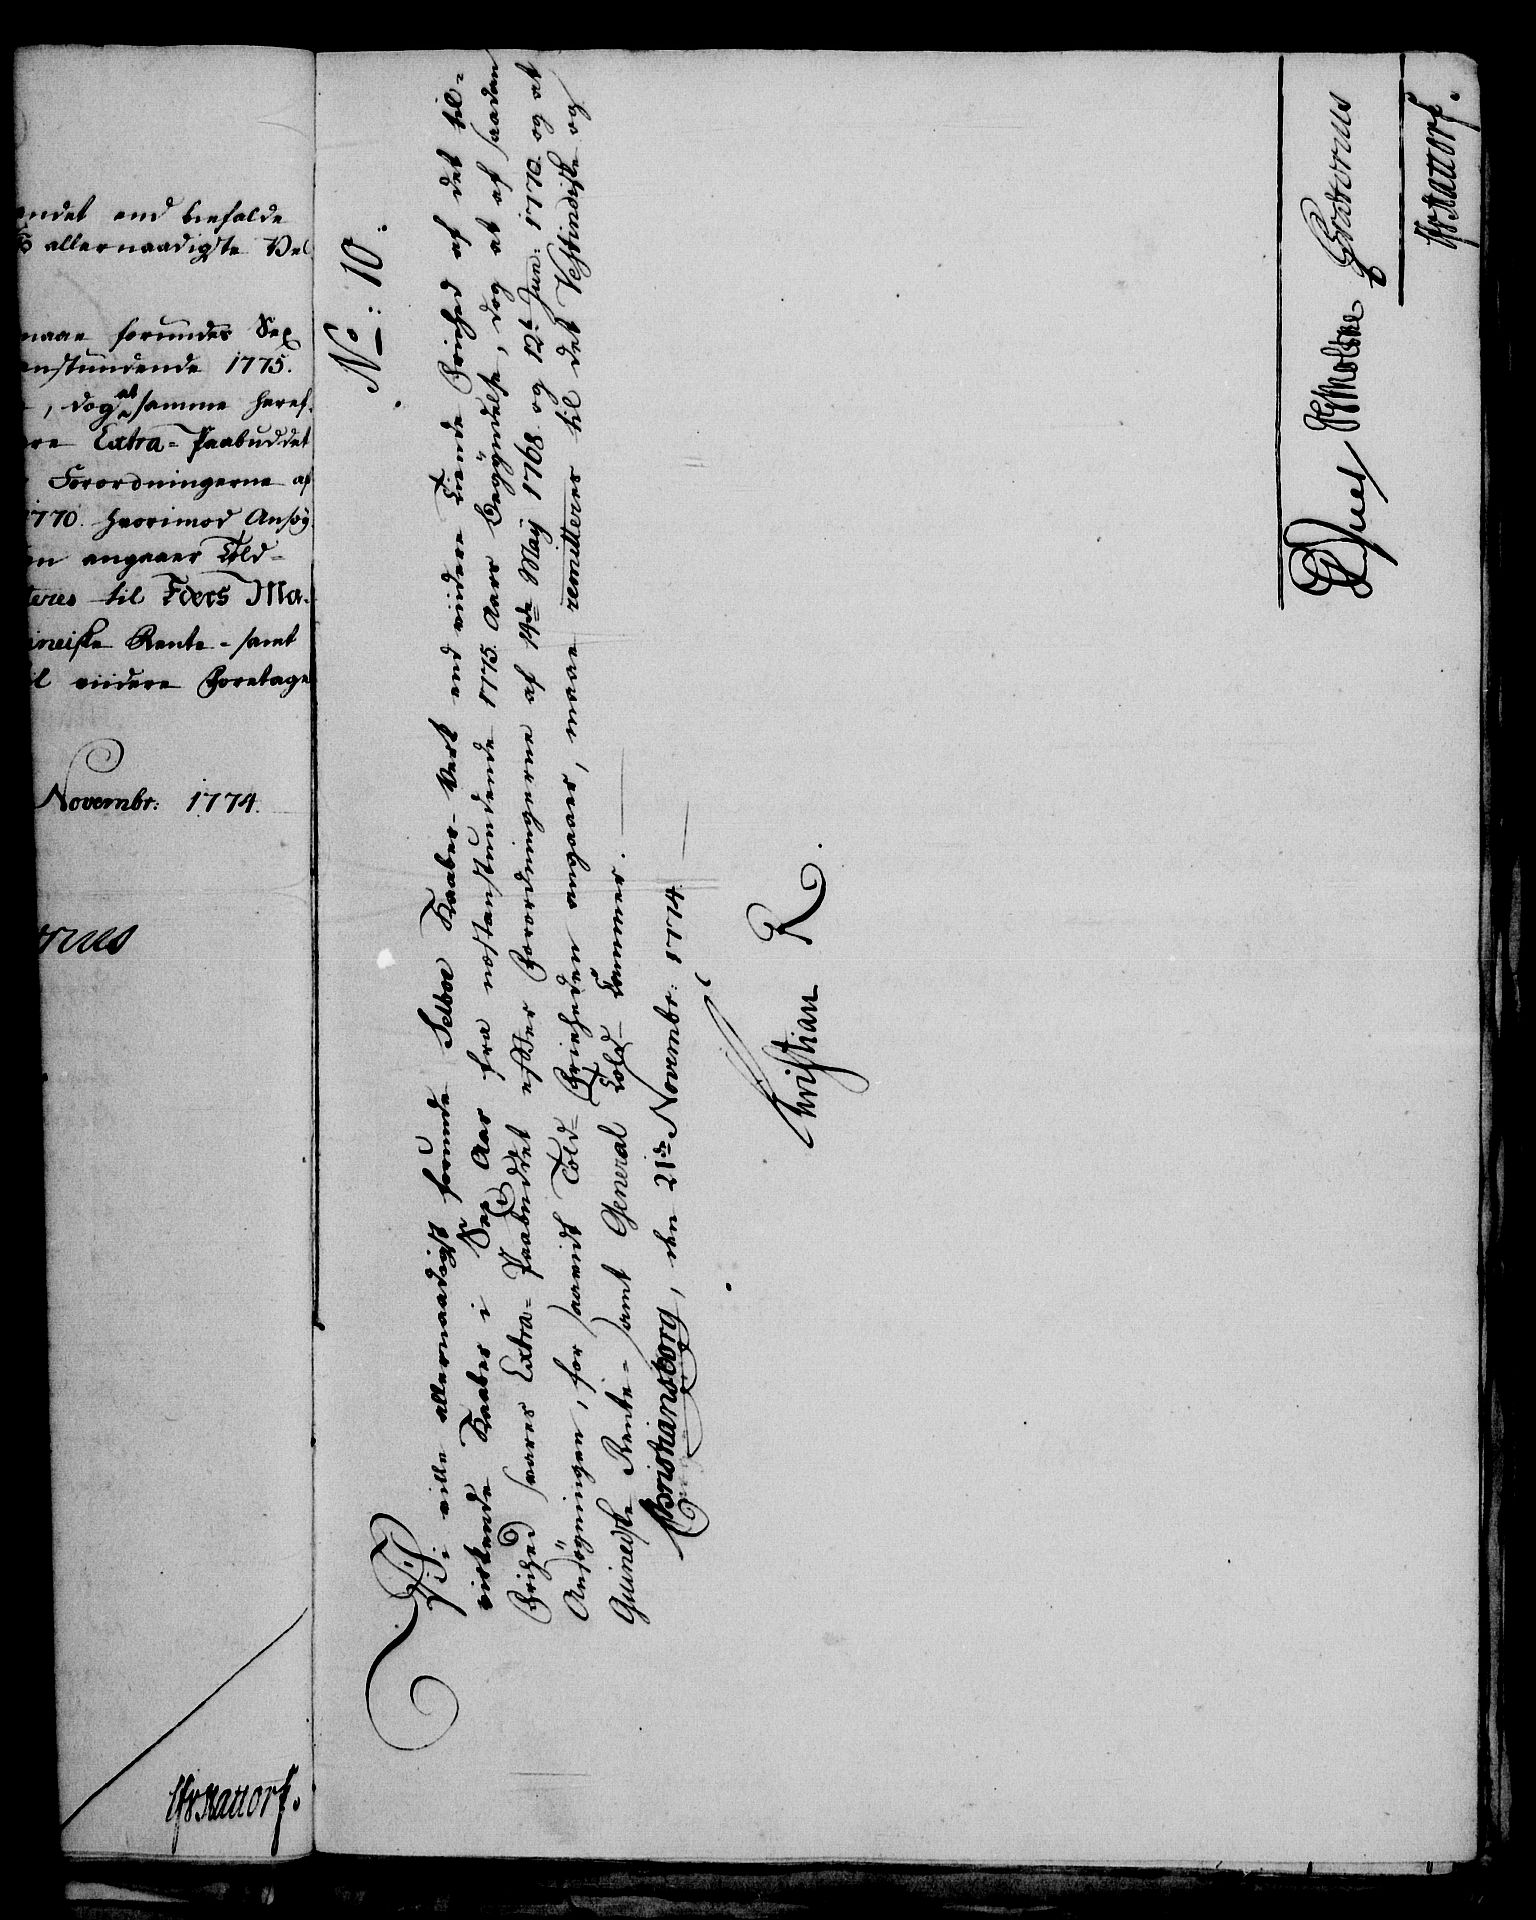 endet end befalde
allernaadigste Vel
maae forundes Sex
enstundende 1775.
, dog at samme heref-
re Extra-Paabuddet
Forordningerne af
1770. hvorimod Ansög-
en angaaer Told-
teres til Toers Ma-
ineiske Rente- samt
il viidere Foretage
Novembr: 1774.
rnes
CfvNattorf.
No: 10.
Vi ville allernaadigst forunde Selboe Kaaber-Verk end viidere Tiende Friehed af det til-
virkende Kaaber i Sex Aar fra næstanstundende 1775 Aars Begÿndelse, dog at af saadan
Frihed svares Extra-Paabuddet efter Forordningerne af 14de Maÿ 1768 og 12te Jun: 1770. og at
Ansögningen, for saavidt Told-Frieheden angaaer, maae remitteres til det Vestindiske og
Guineiske Rente- samt General Told-Cammer.
Christiansborg, den 21de Novembr: 1774.
Christian R.
GMoltke
CfvNattorf.